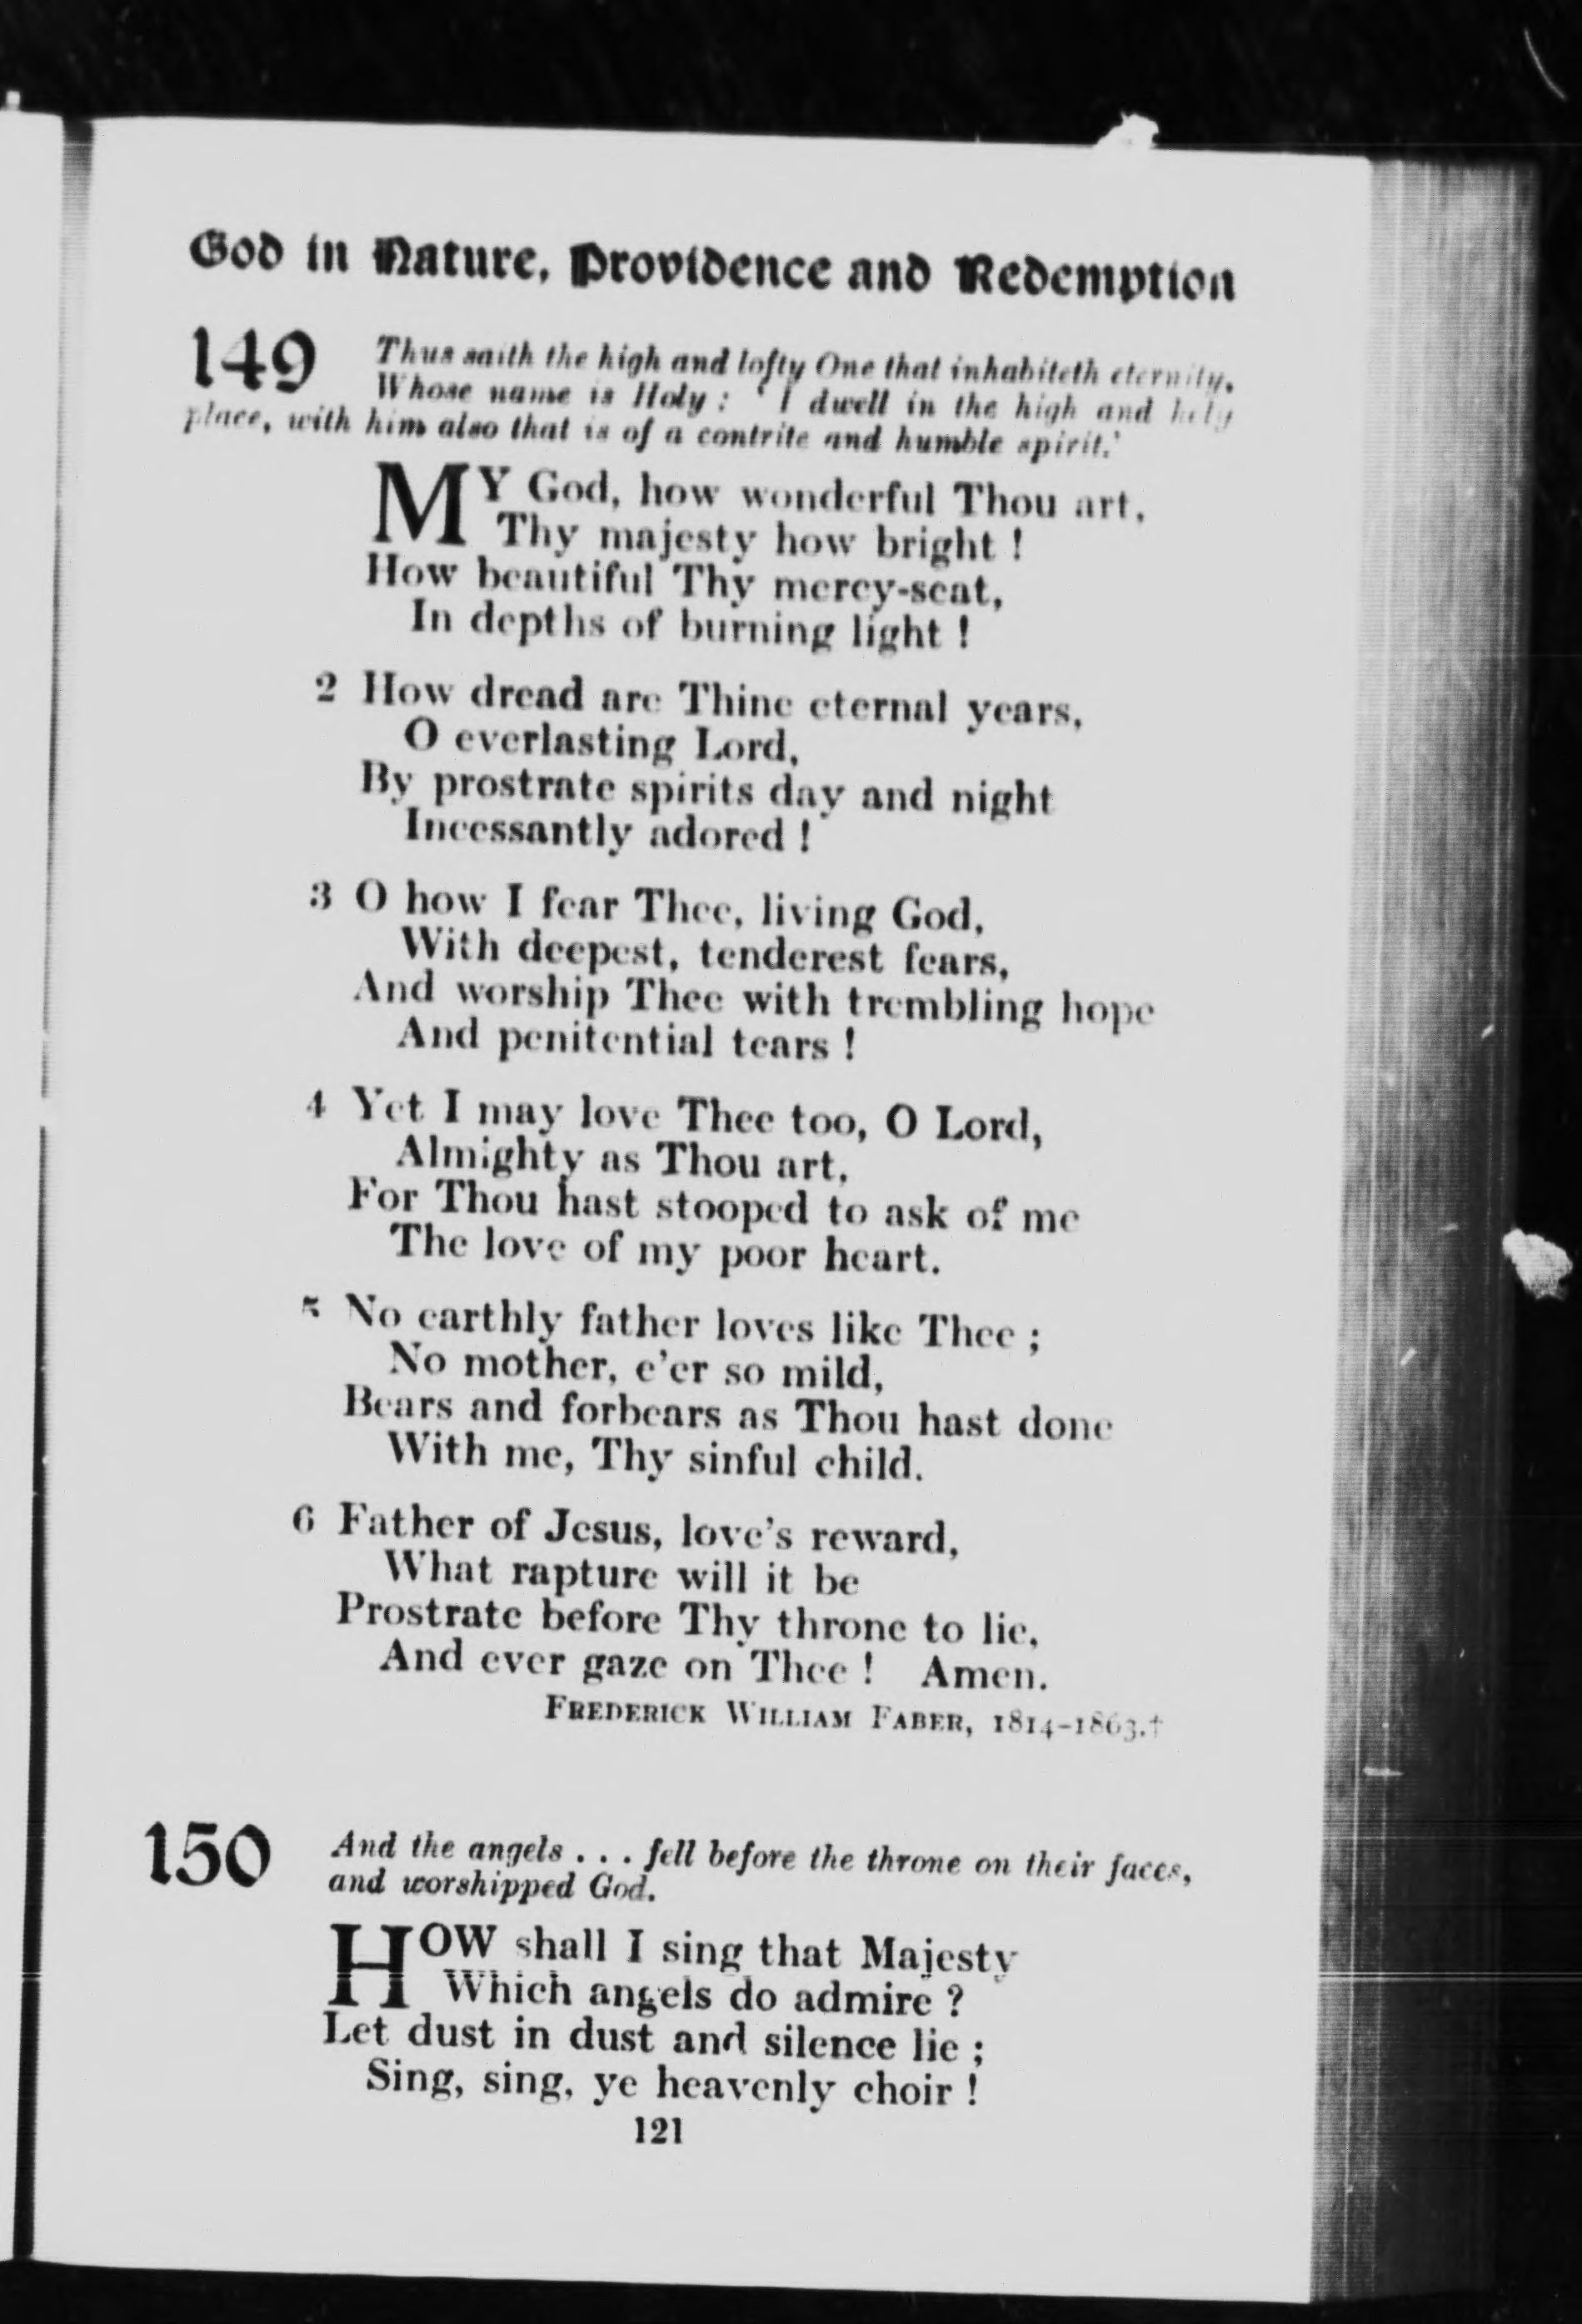 God in Nature, Providence and Redemption
149 Thus saith the high and lofty One that inhabiteth eternity,
Whose name is Holy : ‘ I dwell in the high and holy
place, with him also that is of a contrite and humble spirit.’
MY God, how wonderful Thou art,
Thy majesty how bright !
How beautiful Thy mercy-seat,
In depths of burning light !
2 How dread are Thine eternal years,
O everlasting Lord,
By prostrate spirits day and night
Incessantly adored !
3 O how I fear Thee, living God,
With deepest, tenderest fears,
And worship Thee with trembling hope
And penitential tears !
4 Yet I may love Thee too, O Lord,
Almighty as Thou art,
For Thou hast stooped to ask of me
The love of my poor heart.
5 No earthly father loves like Thee ;
No mother, e’er so mild,
Bears and forbears as Thou hast done
With me, Thy sinful child.
6 Father of Jesus, love’s reward,
What rapture will it be
Prostrate before Thy throne to lie,
And ever gaze on Thee ! Amen.
FREDERICK WILLIAM FABER, 1814–1863.†
150 And the angels . . . fell before the throne on their faces,
and worshipped God.
HOW shall I sing that Majesty
Which angels do admire ?
Let dust in dust and silence lie ;
Sing, sing, ye heavenly choir !
121